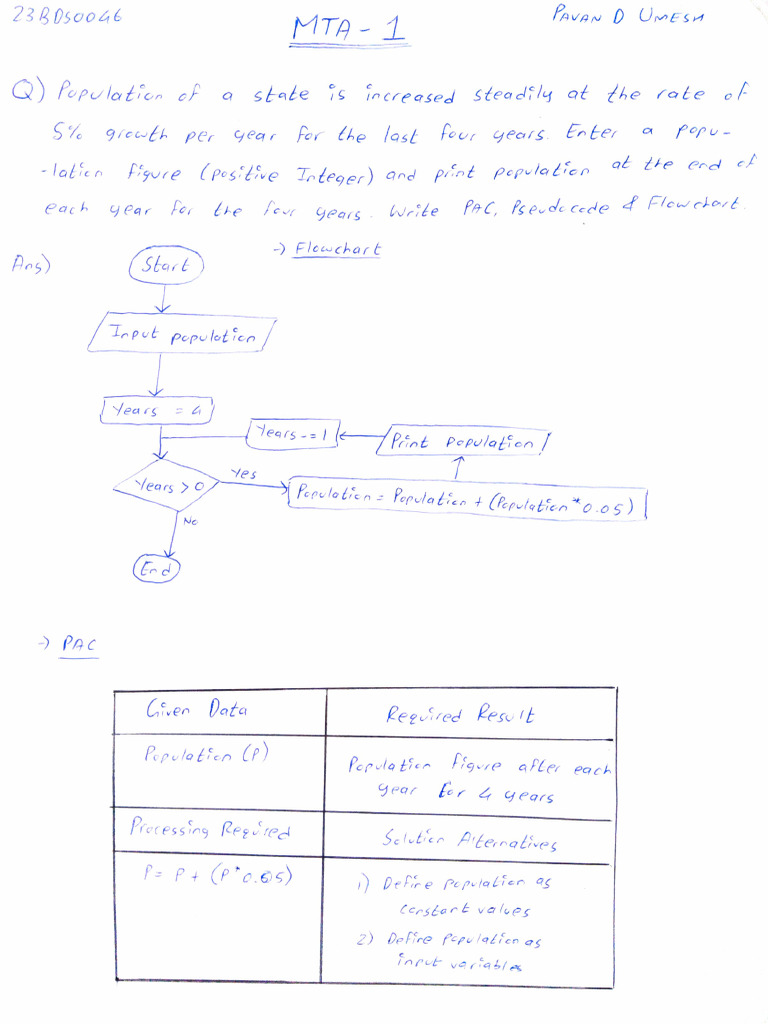 23BDS0046
PAVAN D UMESH
MTA - 1
Q) Population of a state is increased steadily at the rate of
5% growth per year for the last four years. Enter a popu-
-lation figure (positive Integer) and print population at the end of
each year for the four years. Write PAC, Pseudocode & Flowchart.
Ans)
→ Flowchart
Start
Input population
Years = 4
Years -= 1
Print population
Years > 0
Yes
Population = Population + (Population * 0.05)
No
End
→ PAC
Given Data
Required Result
Population (P)
Population figure after each
year for 4 years
Processing Required
Solution Alternatives
P = P + (P * 0.05)
1) Define population as
constant values
2) Define population as
input variables